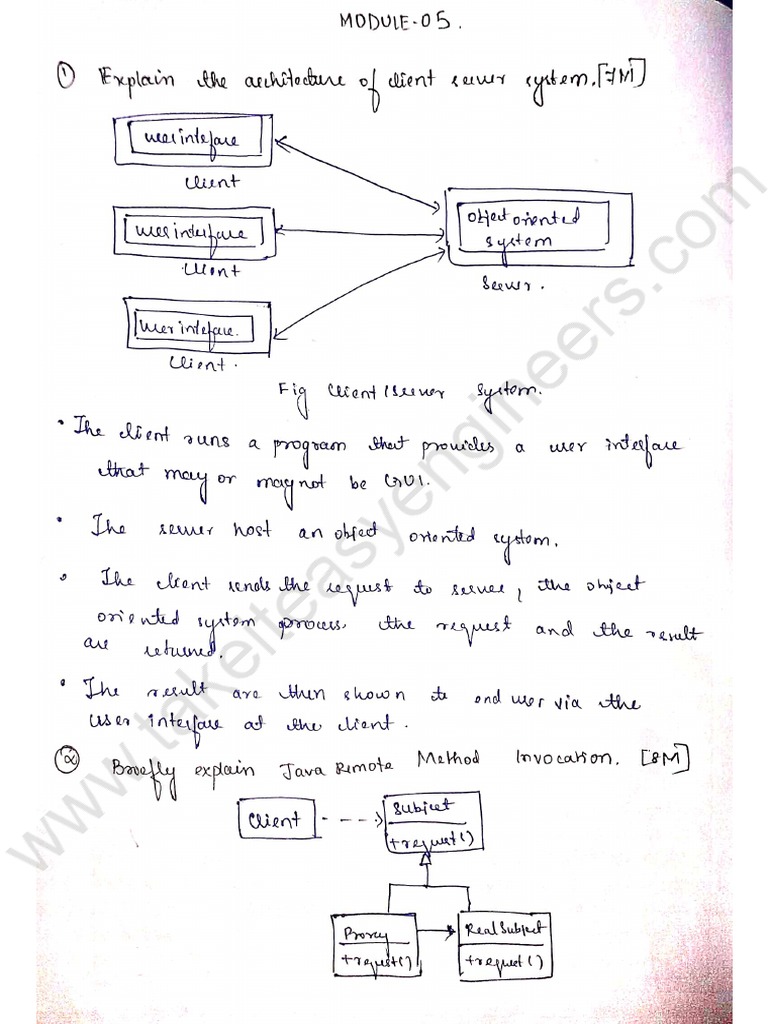 MODULE-05.
① Explain the architecture of client server system. [7M]
user interface
client
user interface
client
user interface.
client.
object oriented
system
server.
Fig client/server system.
• The client runs a program that provides a user interface
that may or may not be GUI.
• The server host an object oriented system.
• The client sends the request to server, the object
oriented system process the request and the result
are returned.
• The result are then shown to end user via the
user interface at the client.
② Briefly explain Java Remote Method Invocation. [8M]
Client
Subject
+request()
Proxy
+request()
RealSubject
+request()
www.takeiteasyengineers.com